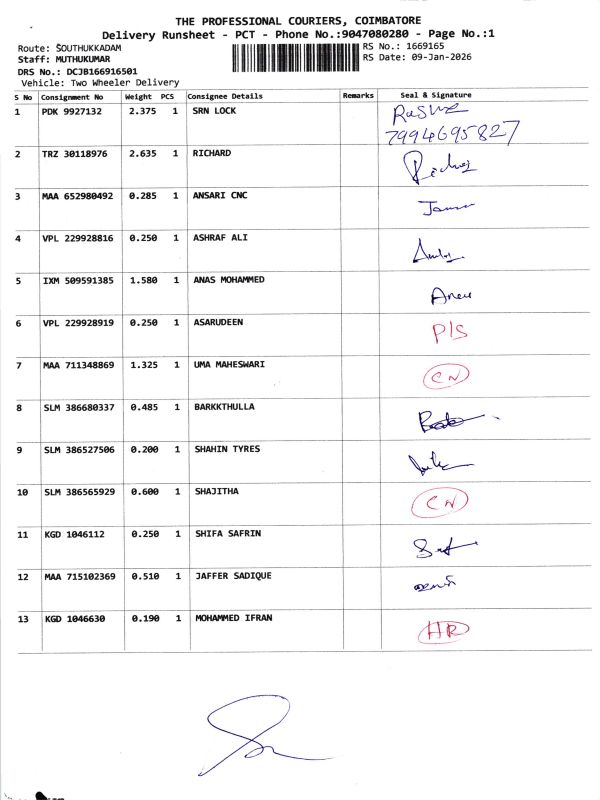 THE PROFESSIONAL COURIERS, COIMBATORE
Delivery Runsheet - PCT - Phone No.:9047080280 - Page No.:1
Route: SOUTHUKKADAM
RS No.: 1669165
Staff: MUTHUKUMAR
RS Date: 09-Jan-2026
DRS No.: DCJB166916501
Vehicle: Two Wheeler Delivery
S No Consignment No Weight PCS Consignee Details Remarks Seal & Signature
1 PDK 9927132 2.375 1 SRN LOCK
7994695827
2 TRZ 30118976 2.635 1 RICHARD
3 MAA 652980492 0.285 1 ANSARI CNC
4 VPL 229928816 0.250 1 ASHRAF ALI
5 IXM 509591385 1.580 1 ANAS MOHAMMED
6 VPL 229928919 0.250 1 ASARUDEEN P/S
7 MAA 711348869 1.325 1 UMA MAHESWARI CN
8 SLM 386680337 0.485 1 BARKKTHULLA
9 SLM 386527506 0.200 1 SHAHIN TYRES
10 SLM 386565929 0.600 1 SHAJITHA CN
11 KGD 1046112 0.250 1 SHIFA SAFRIN
12 MAA 715102369 0.510 1 JAFFER SADIQUE
13 KGD 1046630 0.190 1 MOHAMMED IFRAN HR